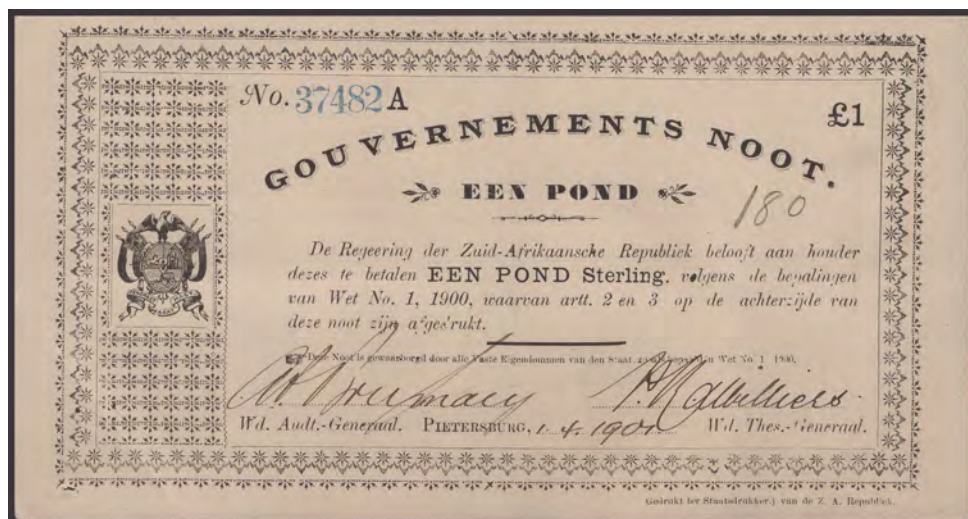 No. 37482 A
£1
GOUVERNEMENTS NOOT.
EEN POND
180
De Regeering der Zuid-Afrikaansche Republiek belooft aan houder
dezes te betalen EEN POND Sterling, volgens de bepalingen
van Wet No. 1, 1900, waarvan artt. 2 en 3 op de achterzijde van
deze noot zijn afgedrukt.
Deze Noot is gewaarborgd door alle Vaste Eigendommen van den Staat, Wet No. 1 1900.
Wd. Audt.-Generaal. PIETERSBURG, 1. 4. 1901 Wd. Thes.-Generaal.
Gedrukt ter Staatsdrukkerij van de Z. A. Republiek.